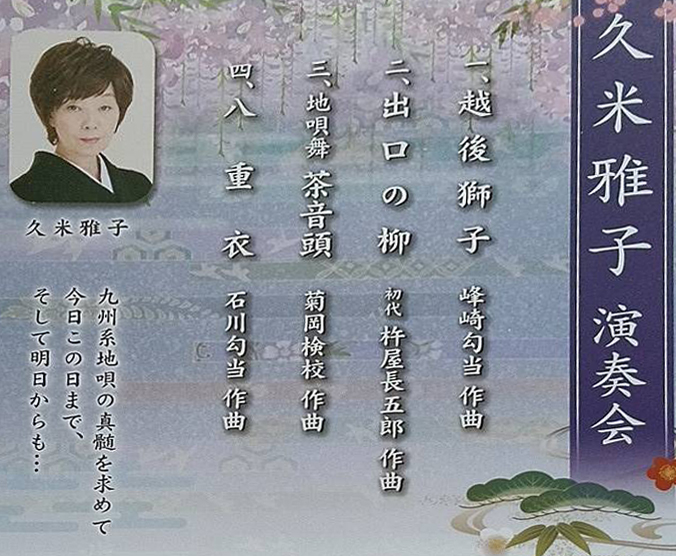 久米雅子 演奏会
一、越後獅子 峰崎勾当 作曲
二、出口の柳 初代 杵屋長五郎 作曲
三、地唄舞 茶音頭 菊岡検校 作曲
四、八重衣 石川勾当 作曲
久米雅子
九州系地唄の真髄を求めて
今日この日まで、
そして明日からも…